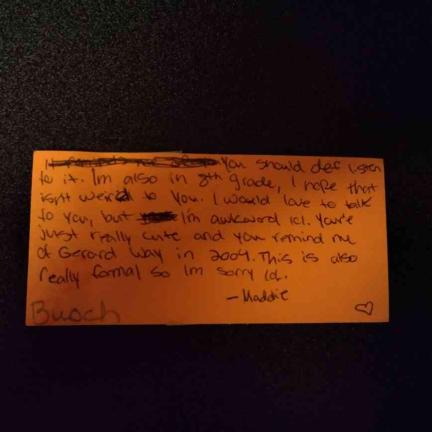 You should def listen
to it. Im also in 8th grade, I hope that
isnt weird to you. I would love to talk
to you, but I'm awkword lol. You're
just really cute and you remind me
of Gerard Way in 2004. This is also
really formal so Im sorry lol.
- Maddie
Busch